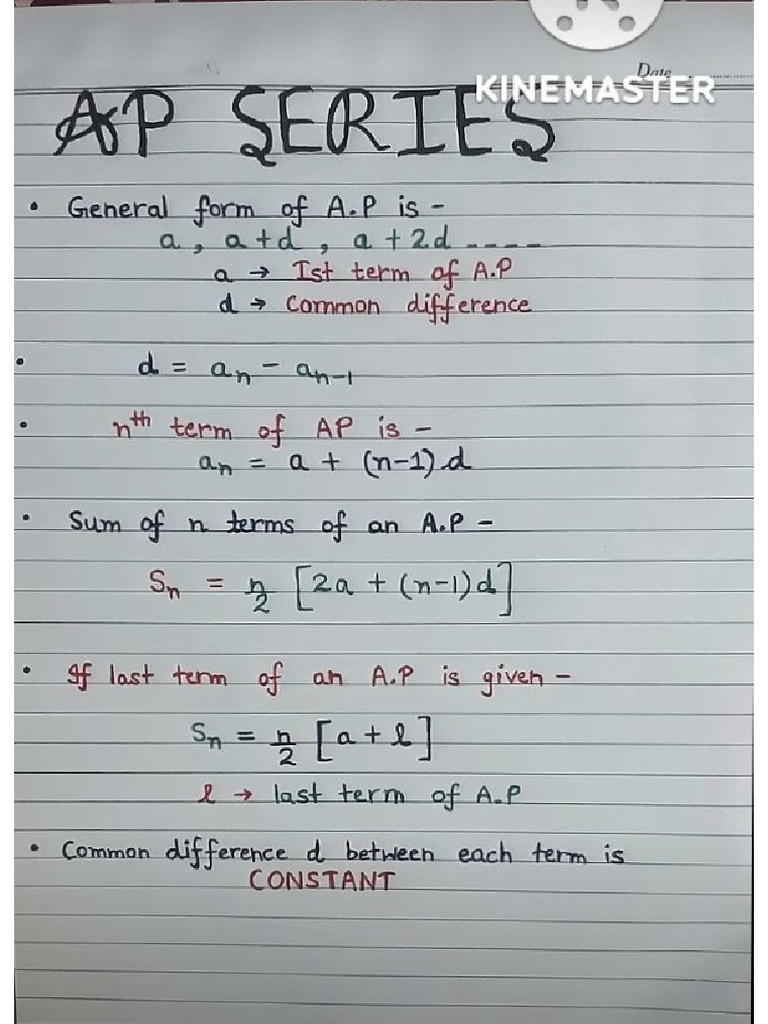 Date
KINEMASTER
AP SERIES
• General form of A.P is -
a, a+d, a+2d ----
a → Ist term of A.P
d → Common difference
• d = aₙ - aₙ₋₁
• nᵗʰ term of AP is -
aₙ = a + (n-1)d
• Sum of n terms of an A.P -
Sₙ = n/2 [2a + (n-1)d]
• If last term of an A.P is given -
Sₙ = n/2 [a + l]
l → last term of A.P
• Common difference d between each term is
CONSTANT